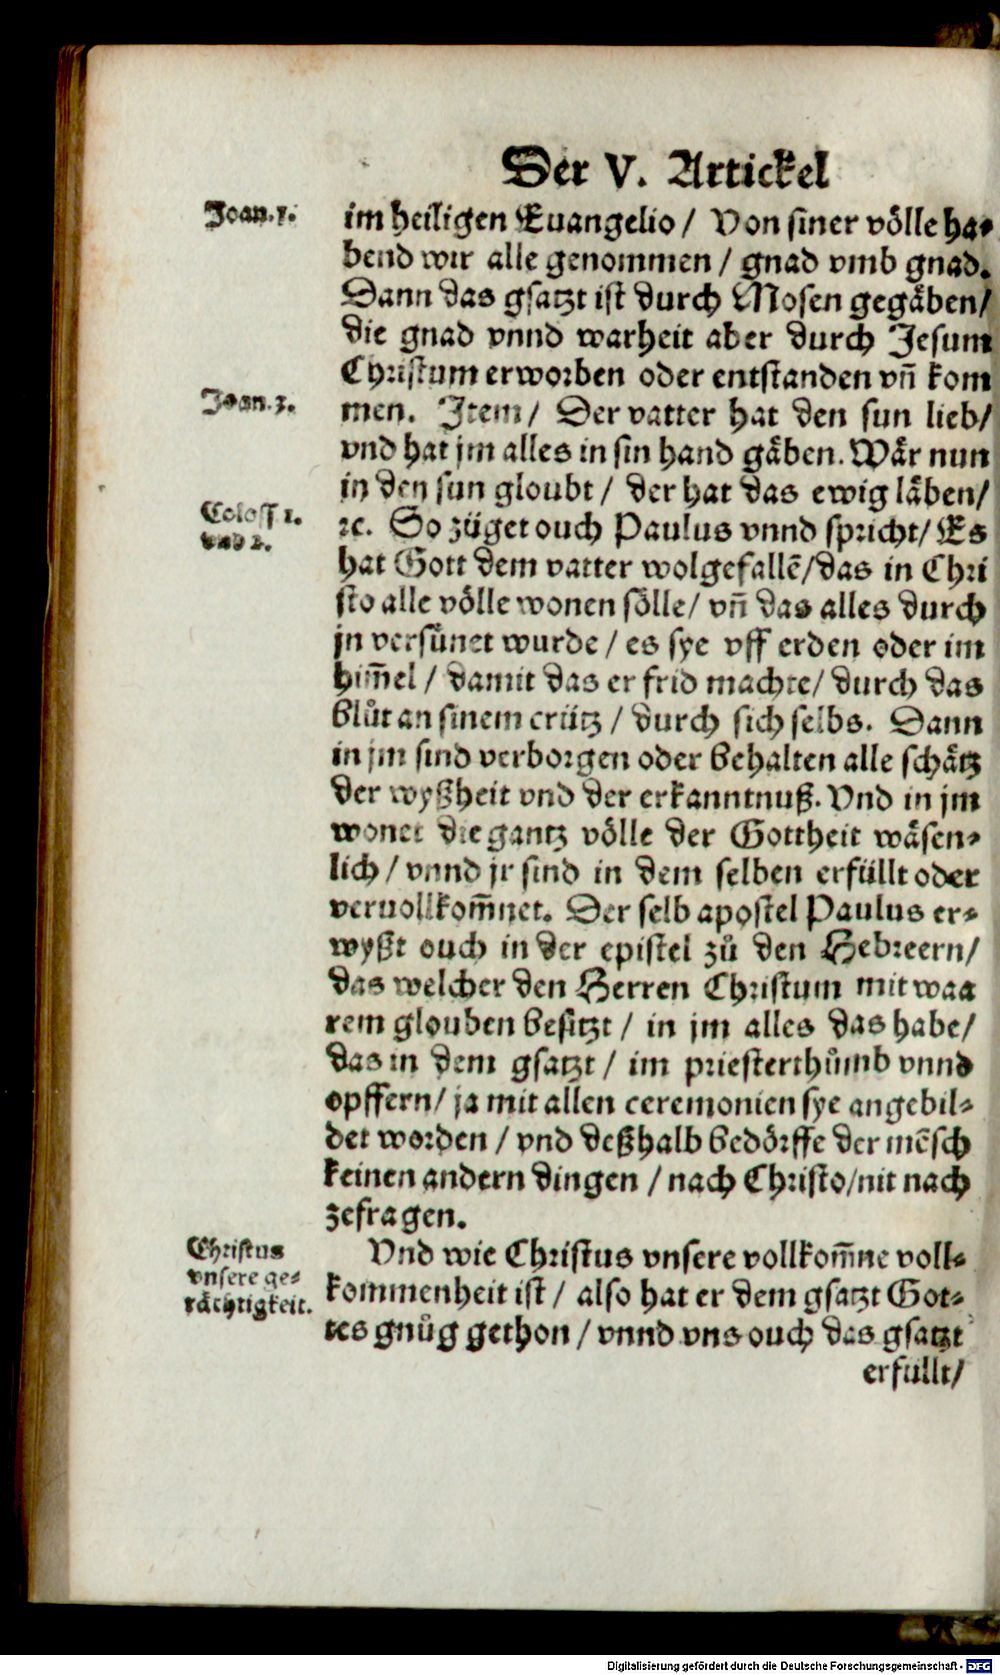 Der V. Artickel
Joan. 1.
im heiligen Euangelio / Von siner völle ha⸗
bend wir alle genommen / gnad vmb gnad.
Dann das gsatzt ist durch Mosen gegäben /
die gnad vnnd warheit aber durch Jesum
Christum erworben oder entstanden vñ kom
Joan. 3.
men. Item / Der vatter hat den sun lieb /
vnd hat jm alles in sin hand gäben. Wär nun
in den sun gloubt / der hat das ewig läben /
Coloss 1.
vnd 2.
ꝛc. So züget ouch Paulus vnnd spricht / Es
hat Gott dem vatter wolgefallē / das in Chri
sto alle völle wonen sölle / vñ das alles durch
jn versünet wurde / es sye vff erden oder im
him̃el / damit das er frid machte / durch das
blůt an sinem crütz / durch sich selbs. Dann
in jm sind verborgen oder behalten alle schätz
der wyßheit vnd der erkanntnuß. Vnd in jm
wonet die gantz völle der Gottheit wäsen⸗
lich / vnnd jr sind in dem selben erfüllt oder
veruollkom̃net. Der selb apostel Paulus er⸗
wyßt ouch in der epistel zů den Hebreern /
das welcher den Herren Christum mit waa
rem glouben besitzt / in jm alles das habe /
das in dem gsatzt / im priesterthůmb vnnd
opffern / ja mit allen ceremonien sye angebil⸗
det worden / vnd deßhalb bedörffe der mēsch
keinen andern dingen / nach Christo / nit nach
zefragen.
Christus
vnsere ge⸗
rächtigkeit.
Vnd wie Christus vnsere vollkom̃ne voll⸗
kommenheit ist / also hat er dem gsatzt Got⸗
tes gnůg gethon / vnnd vns ouch das gsatzt
erfüllt /
Digitalisierung gefördert durch die Deutsche Forschungsgemeinschaft - DFG